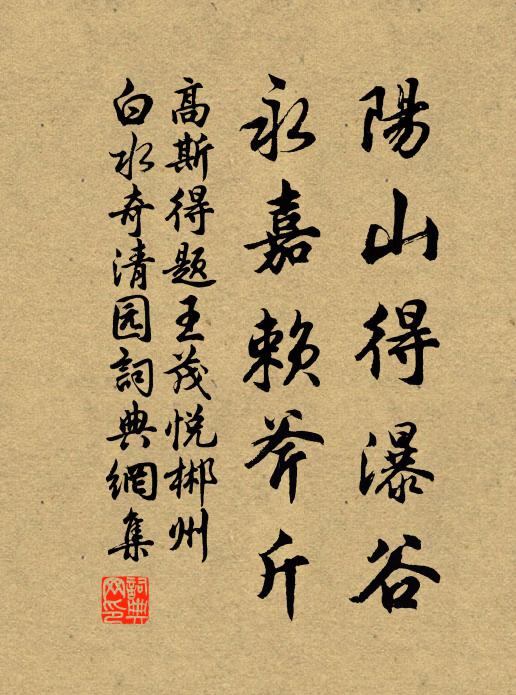 陽山得瀑谷
永嘉賴斧斤
高斯得題王茂悦郴州
白水奇清园詞典網集
詞典网印